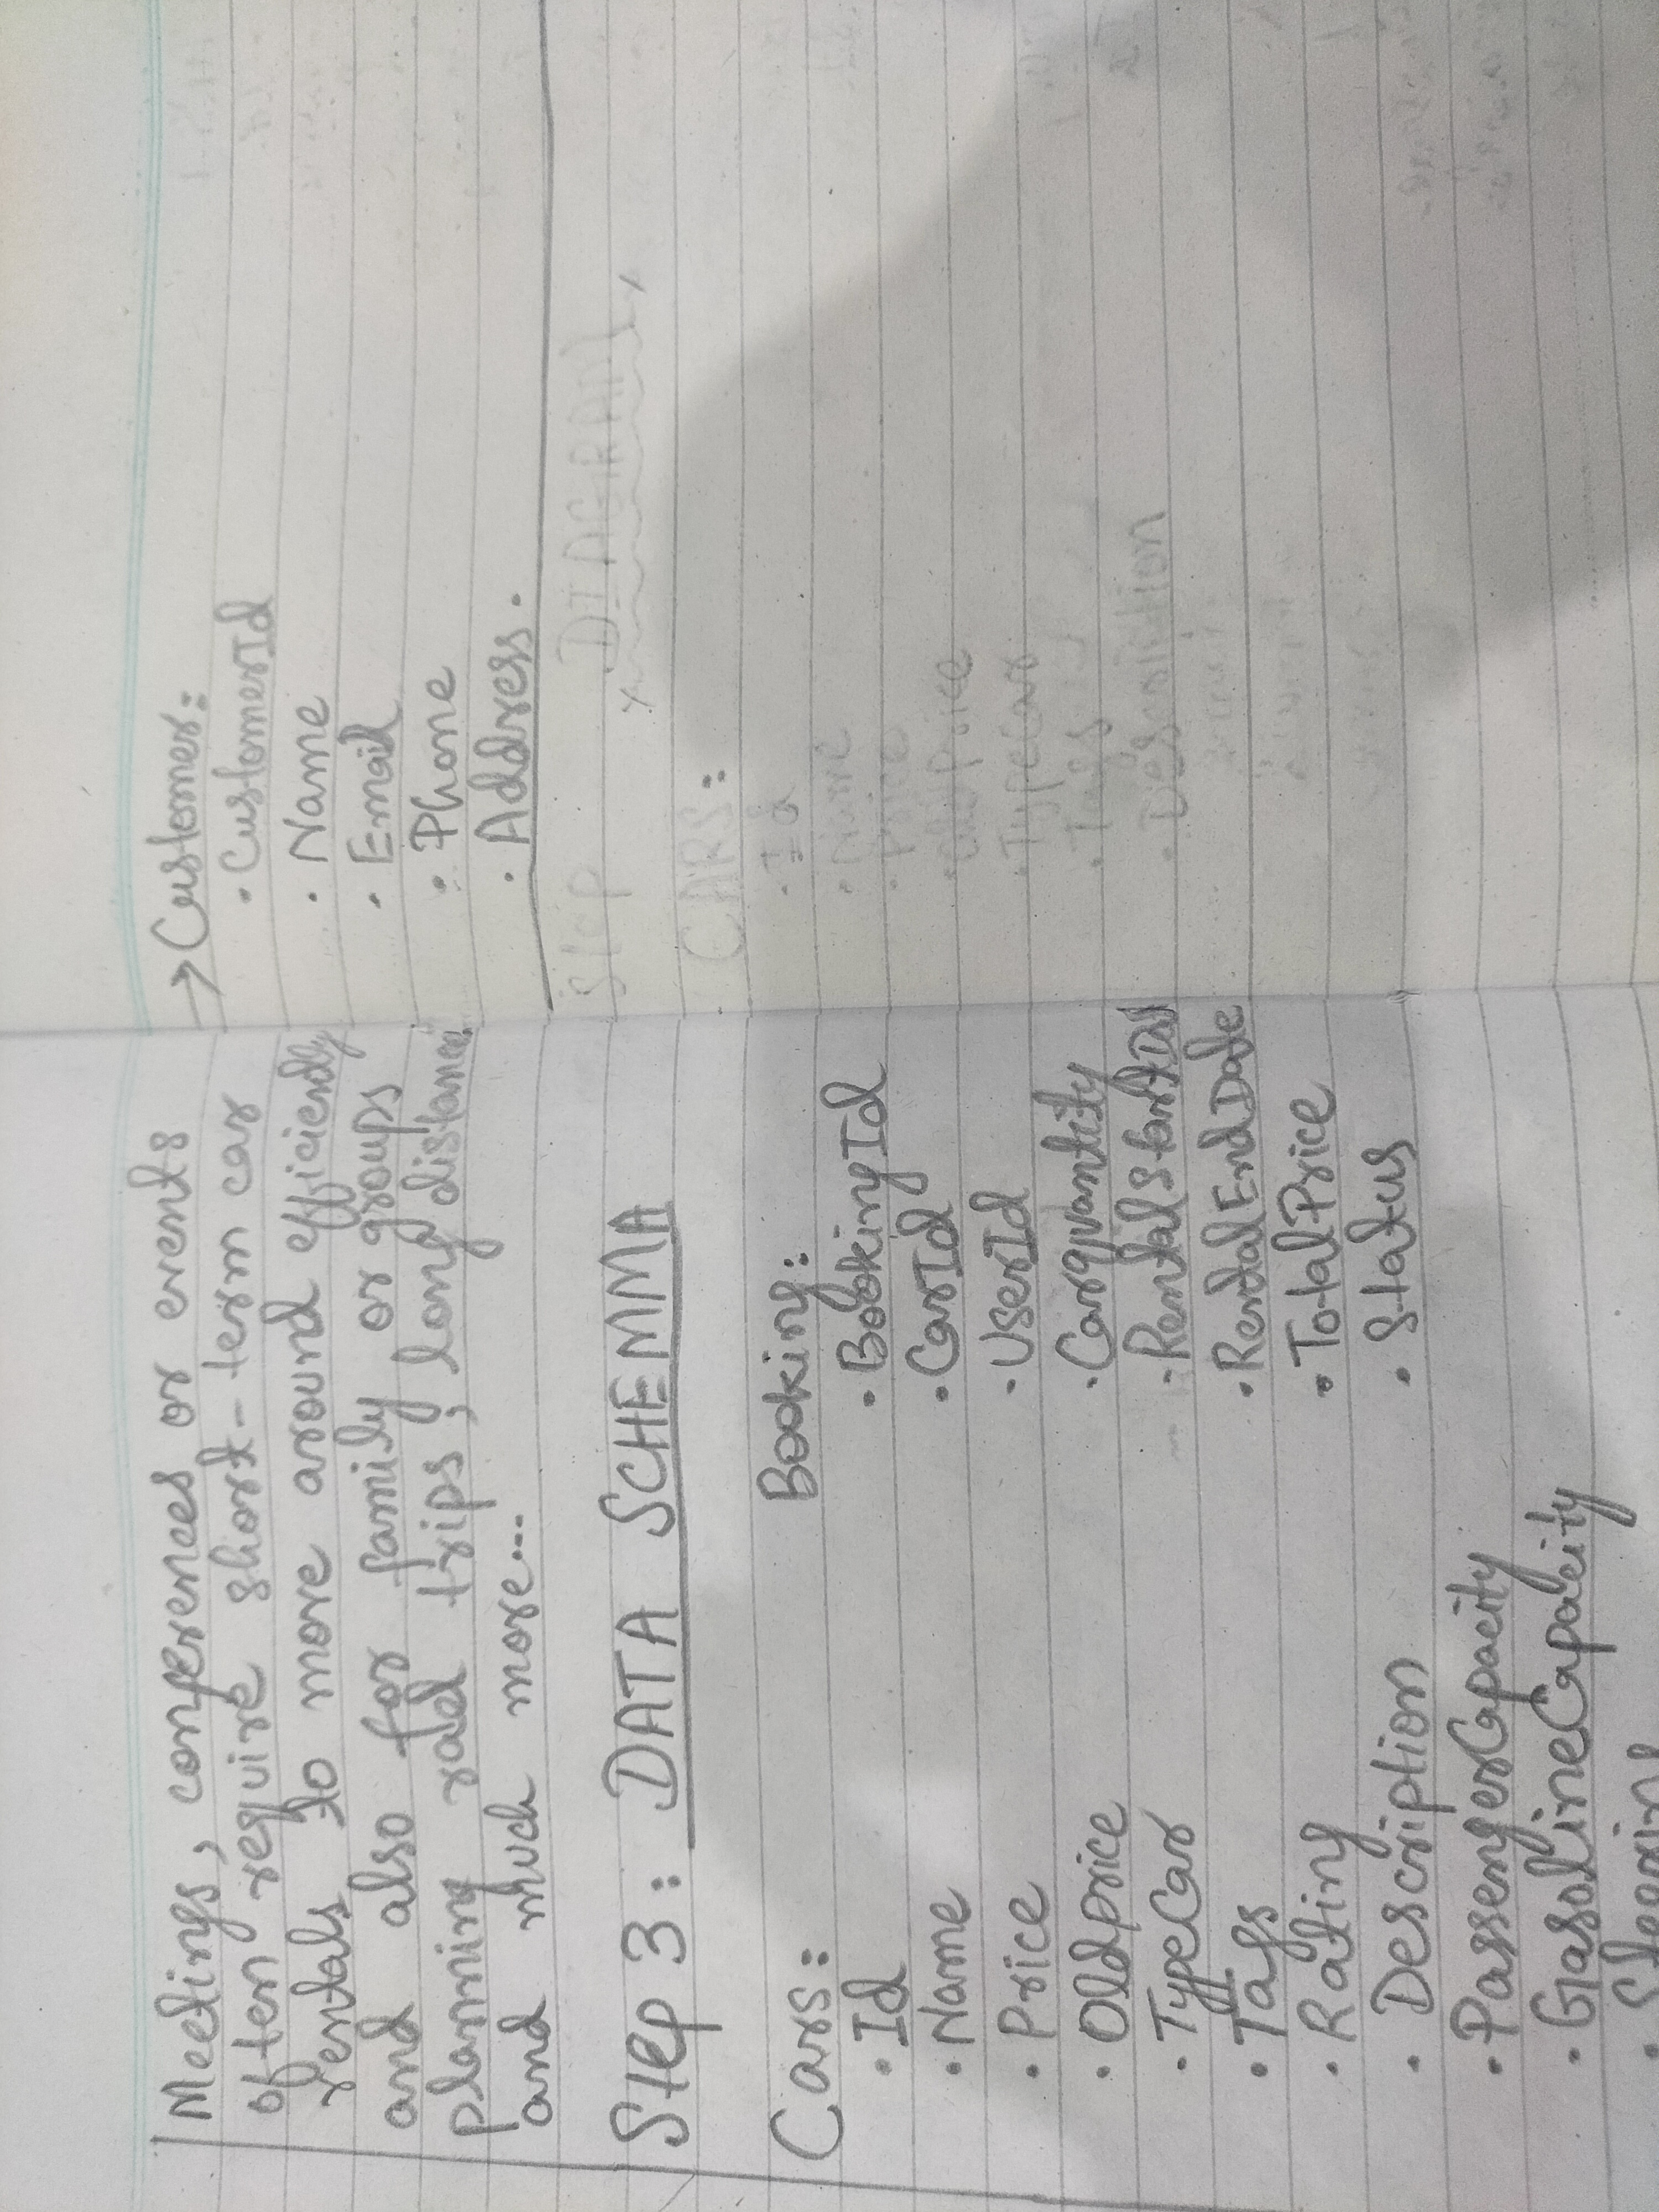 Meetings, conferences or events
often require short-term car
rentals to more around efficiently
and also for family or groups
planning rad trips, long distance
and much more...
Step 3: DATA SCHEMMA
Cars:
• Id
• Name
• Price
• Oldprice
• TypeCar
• Tags
• Rating
• Description
• PassengerCapacity
• GasolineCapacity
• Steering
Booking:
• BookingId
• CarId
• UserId
• Carquantity
• RentalStartDat
• RentalEndDate
• TotalPrice
• Status
→ Customer:
• CustomerId
• Name
• Email
• Phone
• Address.
Step DIAGRAM
CARS:
• Id
• Name
• Price
• OldPrice
• TypeCar
• Tags
• Description